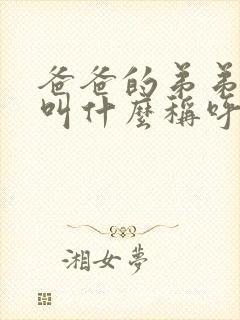 爸爸的弟弟
叫什麼稱呼
湘女夢